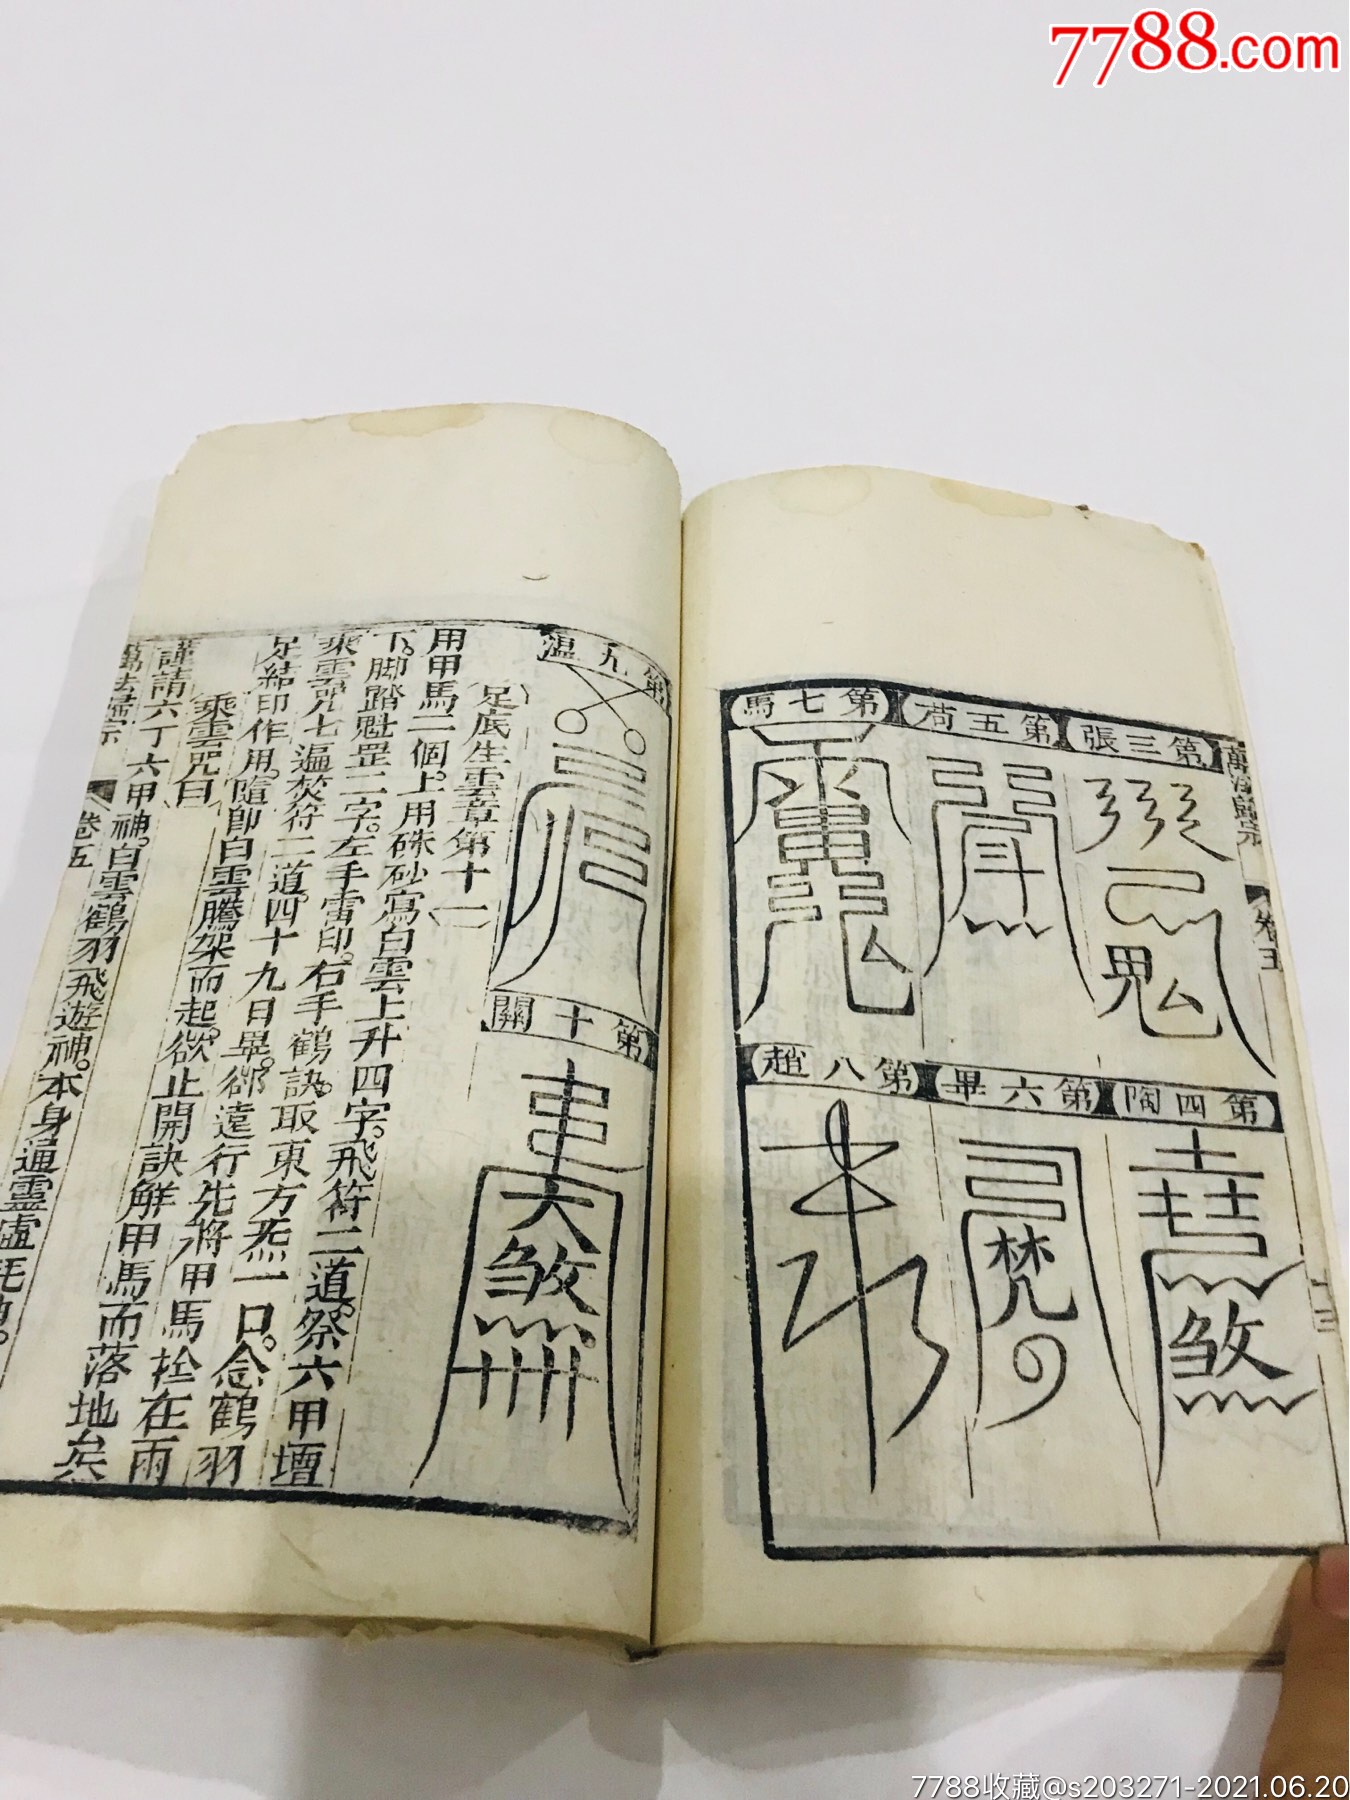 7788.com
萬法歸宗
卷五
十三
第三張
第四陶
第五苟
第六畢
第七馬
第八趙
第九溫
第十關
足底生雲章第十一
用甲馬二個。上用硃砂寫白雲上升四字。飛符二道。祭六甲壇
下。脚踏魁罡二字。左手雷印。右手鶴訣。取東方炁一口。念鶴羽
乘雲咒七遍。焚符二道。四十九日畢。鄉遠行先將甲馬拴在兩
足。結印作用。隨卽白雲騰架而起。欲止開訣解甲馬而落地矣
乘雲咒曰
謹請六丁六甲神。白雲鶴羽飛遊神。本身通靈虛耗神。
萬法歸宗
卷五
7788收藏@s203271-2021.06.20